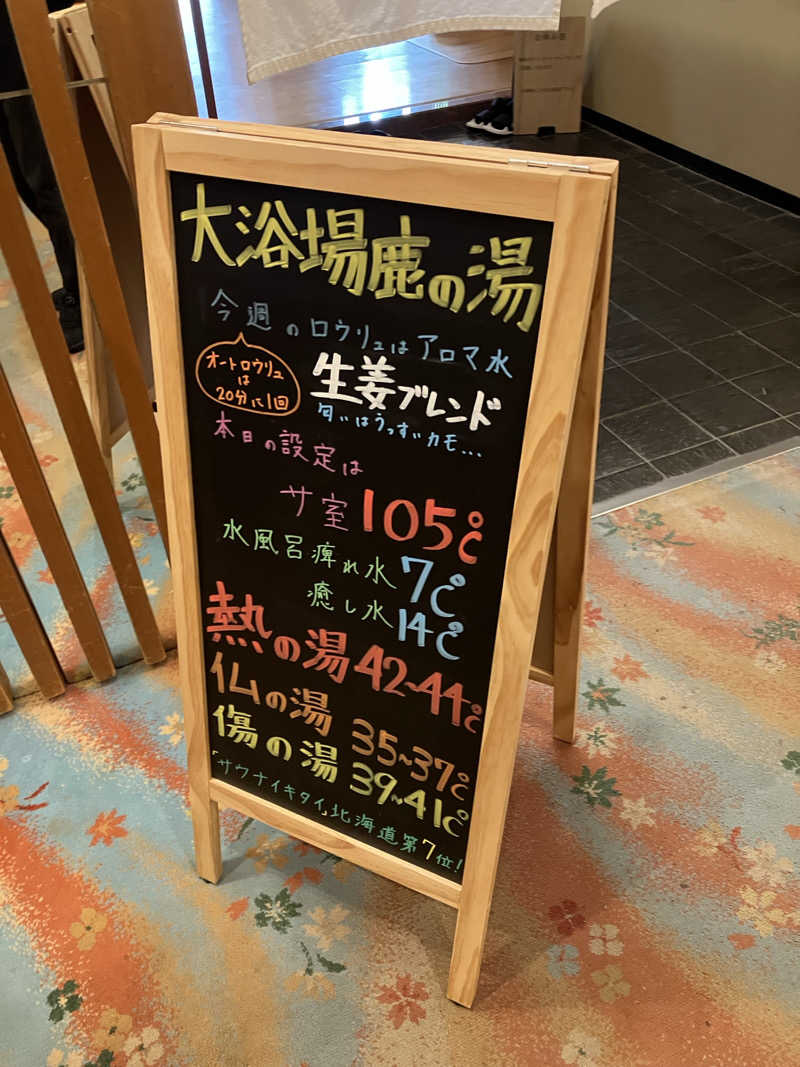 大浴場鹿の湯
今週のロウリュはアロマ水
オートロウリュ
は
20分に1回
生姜ブレンド
匂いはうっすいカモ...
本日の設定は
サ室105℃
水風呂痺れ水7℃
癒し水14℃
熱の湯42~44℃
仏の湯35~37℃
傷の湯39~41℃
「サウナイキタイ」北海道第7位!